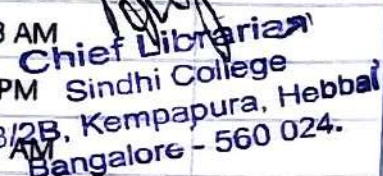 8 AM
Chief Librarian
PM Sindhi College
3/2B, Kempapura, Hebbal
AM
Bangalore - 560 024.